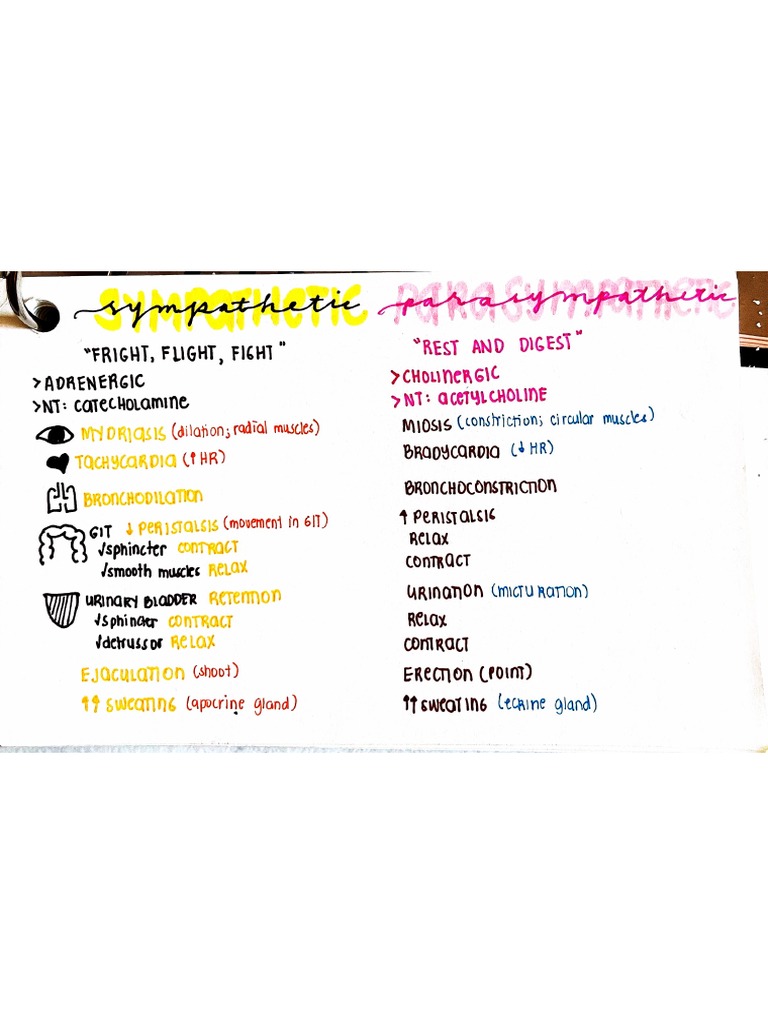 sympathetic
"FRIGHT, FLIGHT, FIGHT"
> ADRENERGIC
> NT: CATECHOLAMINE
MYDRIASIS (dilation; radial muscles)
TACHYCARDIA (↑ HR)
BRONCHODILATION
GIT ↓ PERISTALSIS (movement in GIT)
√sphincter CONTRACT
√smooth muscles RELAX
URINARY BLADDER RETENTION
√sphincter CONTRACT
√detrussor RELAX
EJACULATION (shoot)
↑↑ SWEATING (apocrine gland)
parasympathetic
"REST AND DIGEST"
> CHOLINERGIC
> NT: ACETYLCHOLINE
MIOSIS (constriction; circular muscles)
BRADYCARDIA (↓ HR)
BRONCHOCONSTRICTION
↑ PERISTALSIS
RELAX
CONTRACT
URINATION (MICTURATION)
RELAX
CONTRACT
ERECTION (POINT)
↑↑ SWEATING (eccrine gland)